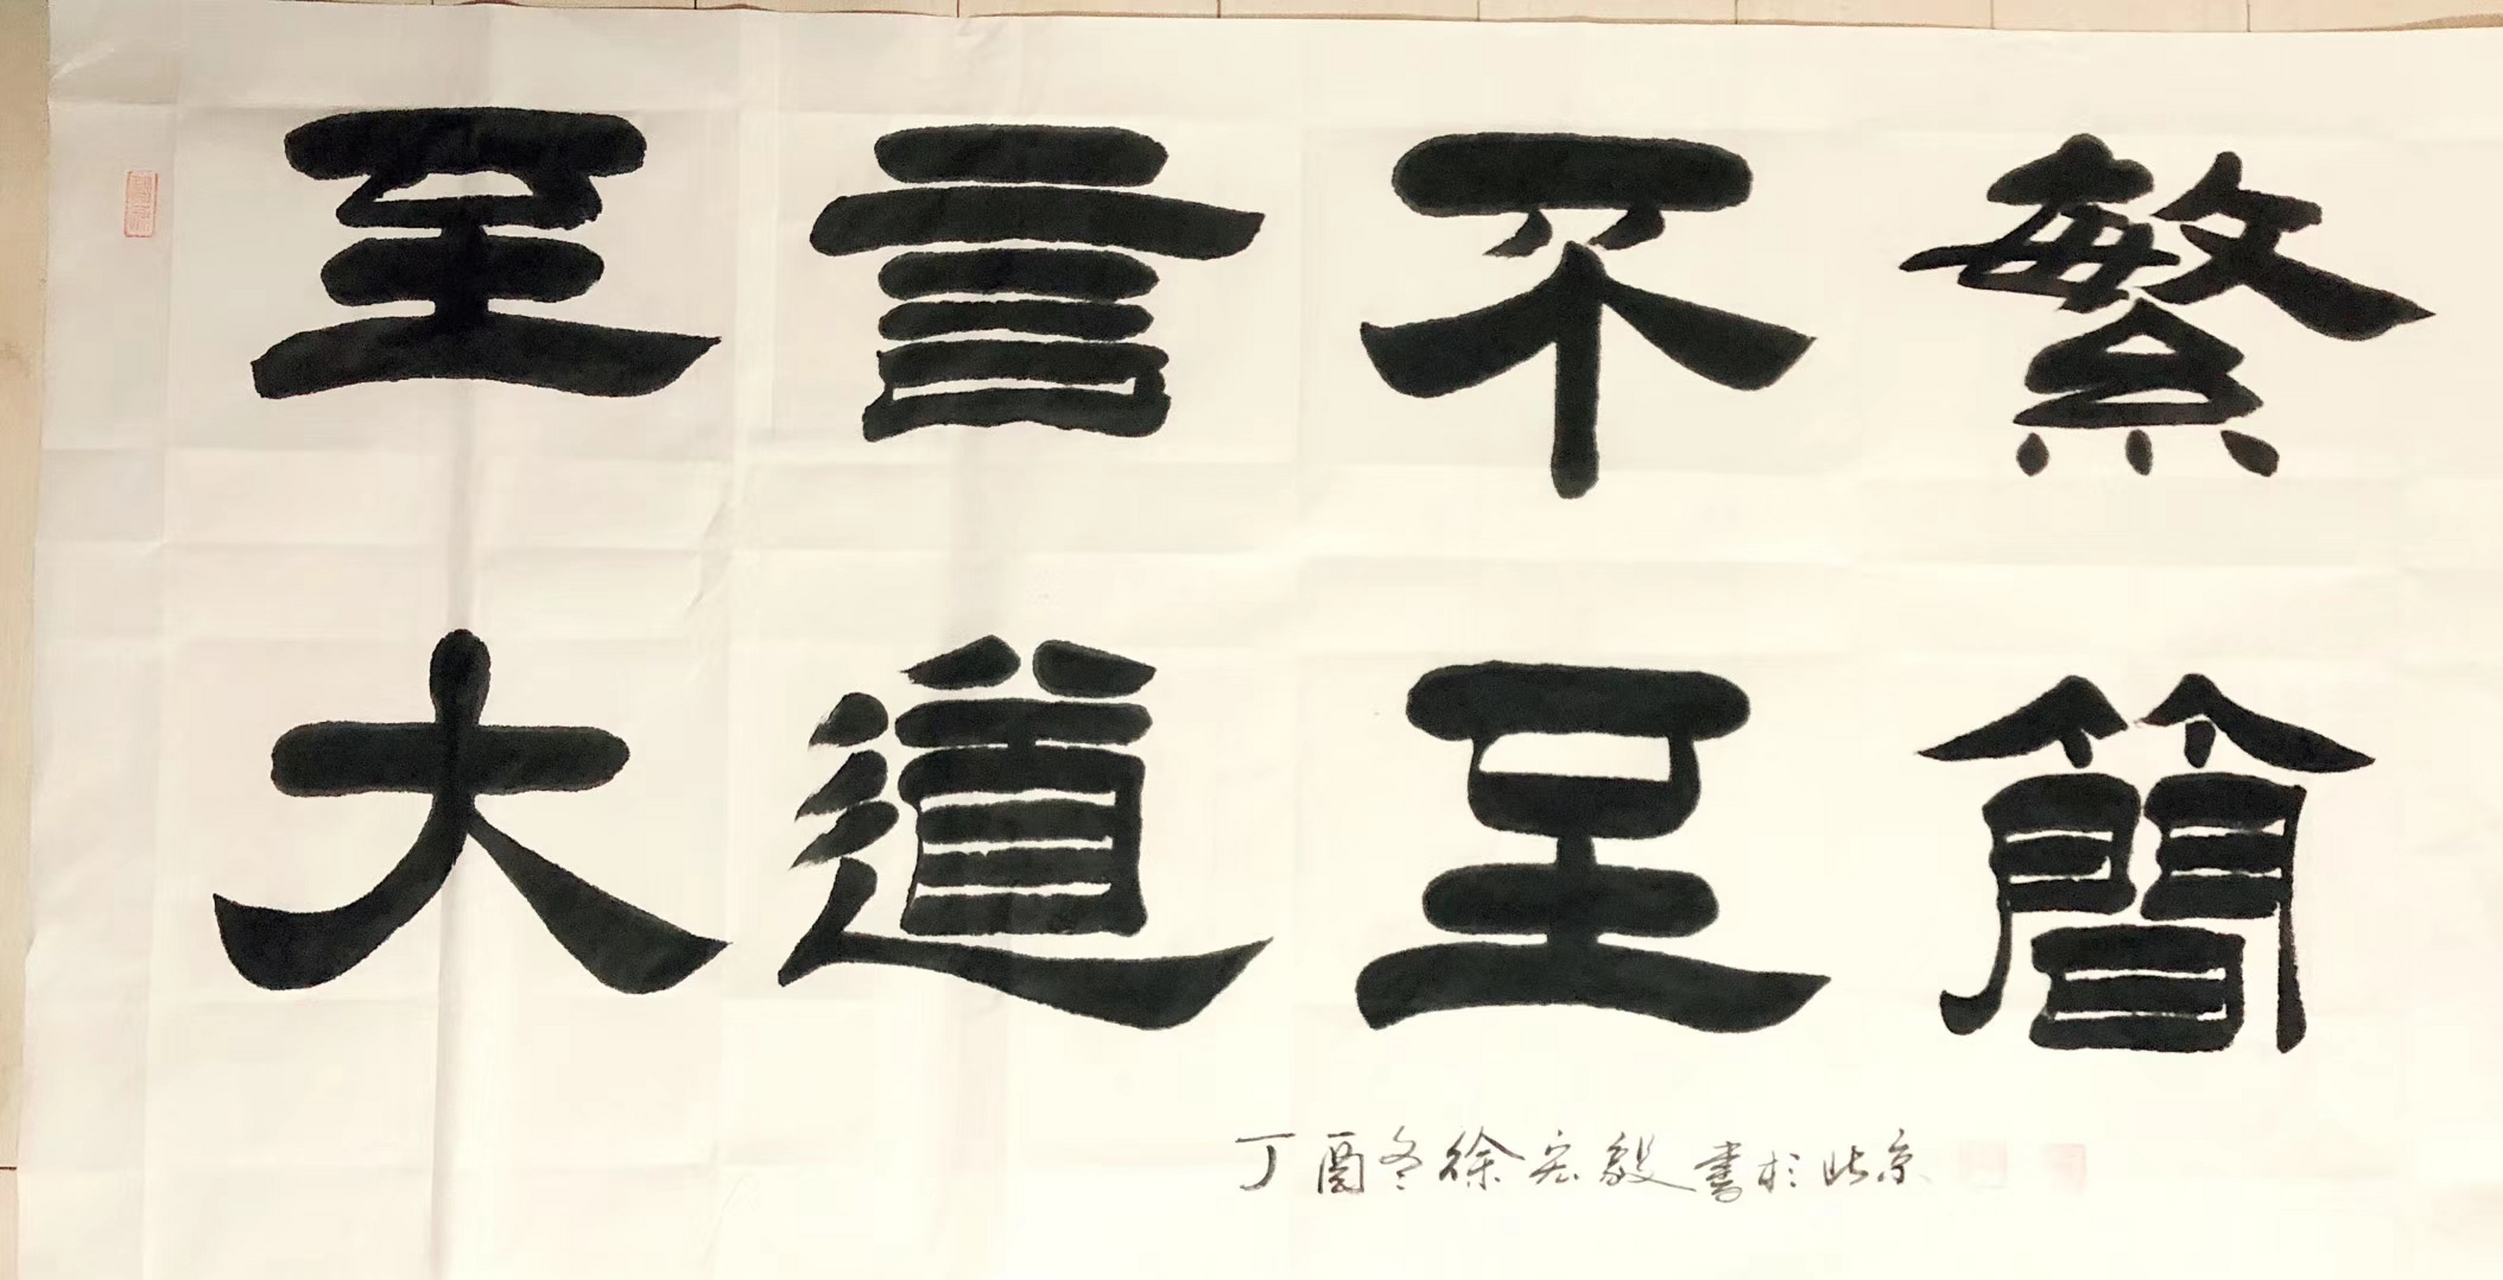 至言不繁
大道至簡
丁酉冬徐宏毅書於北京